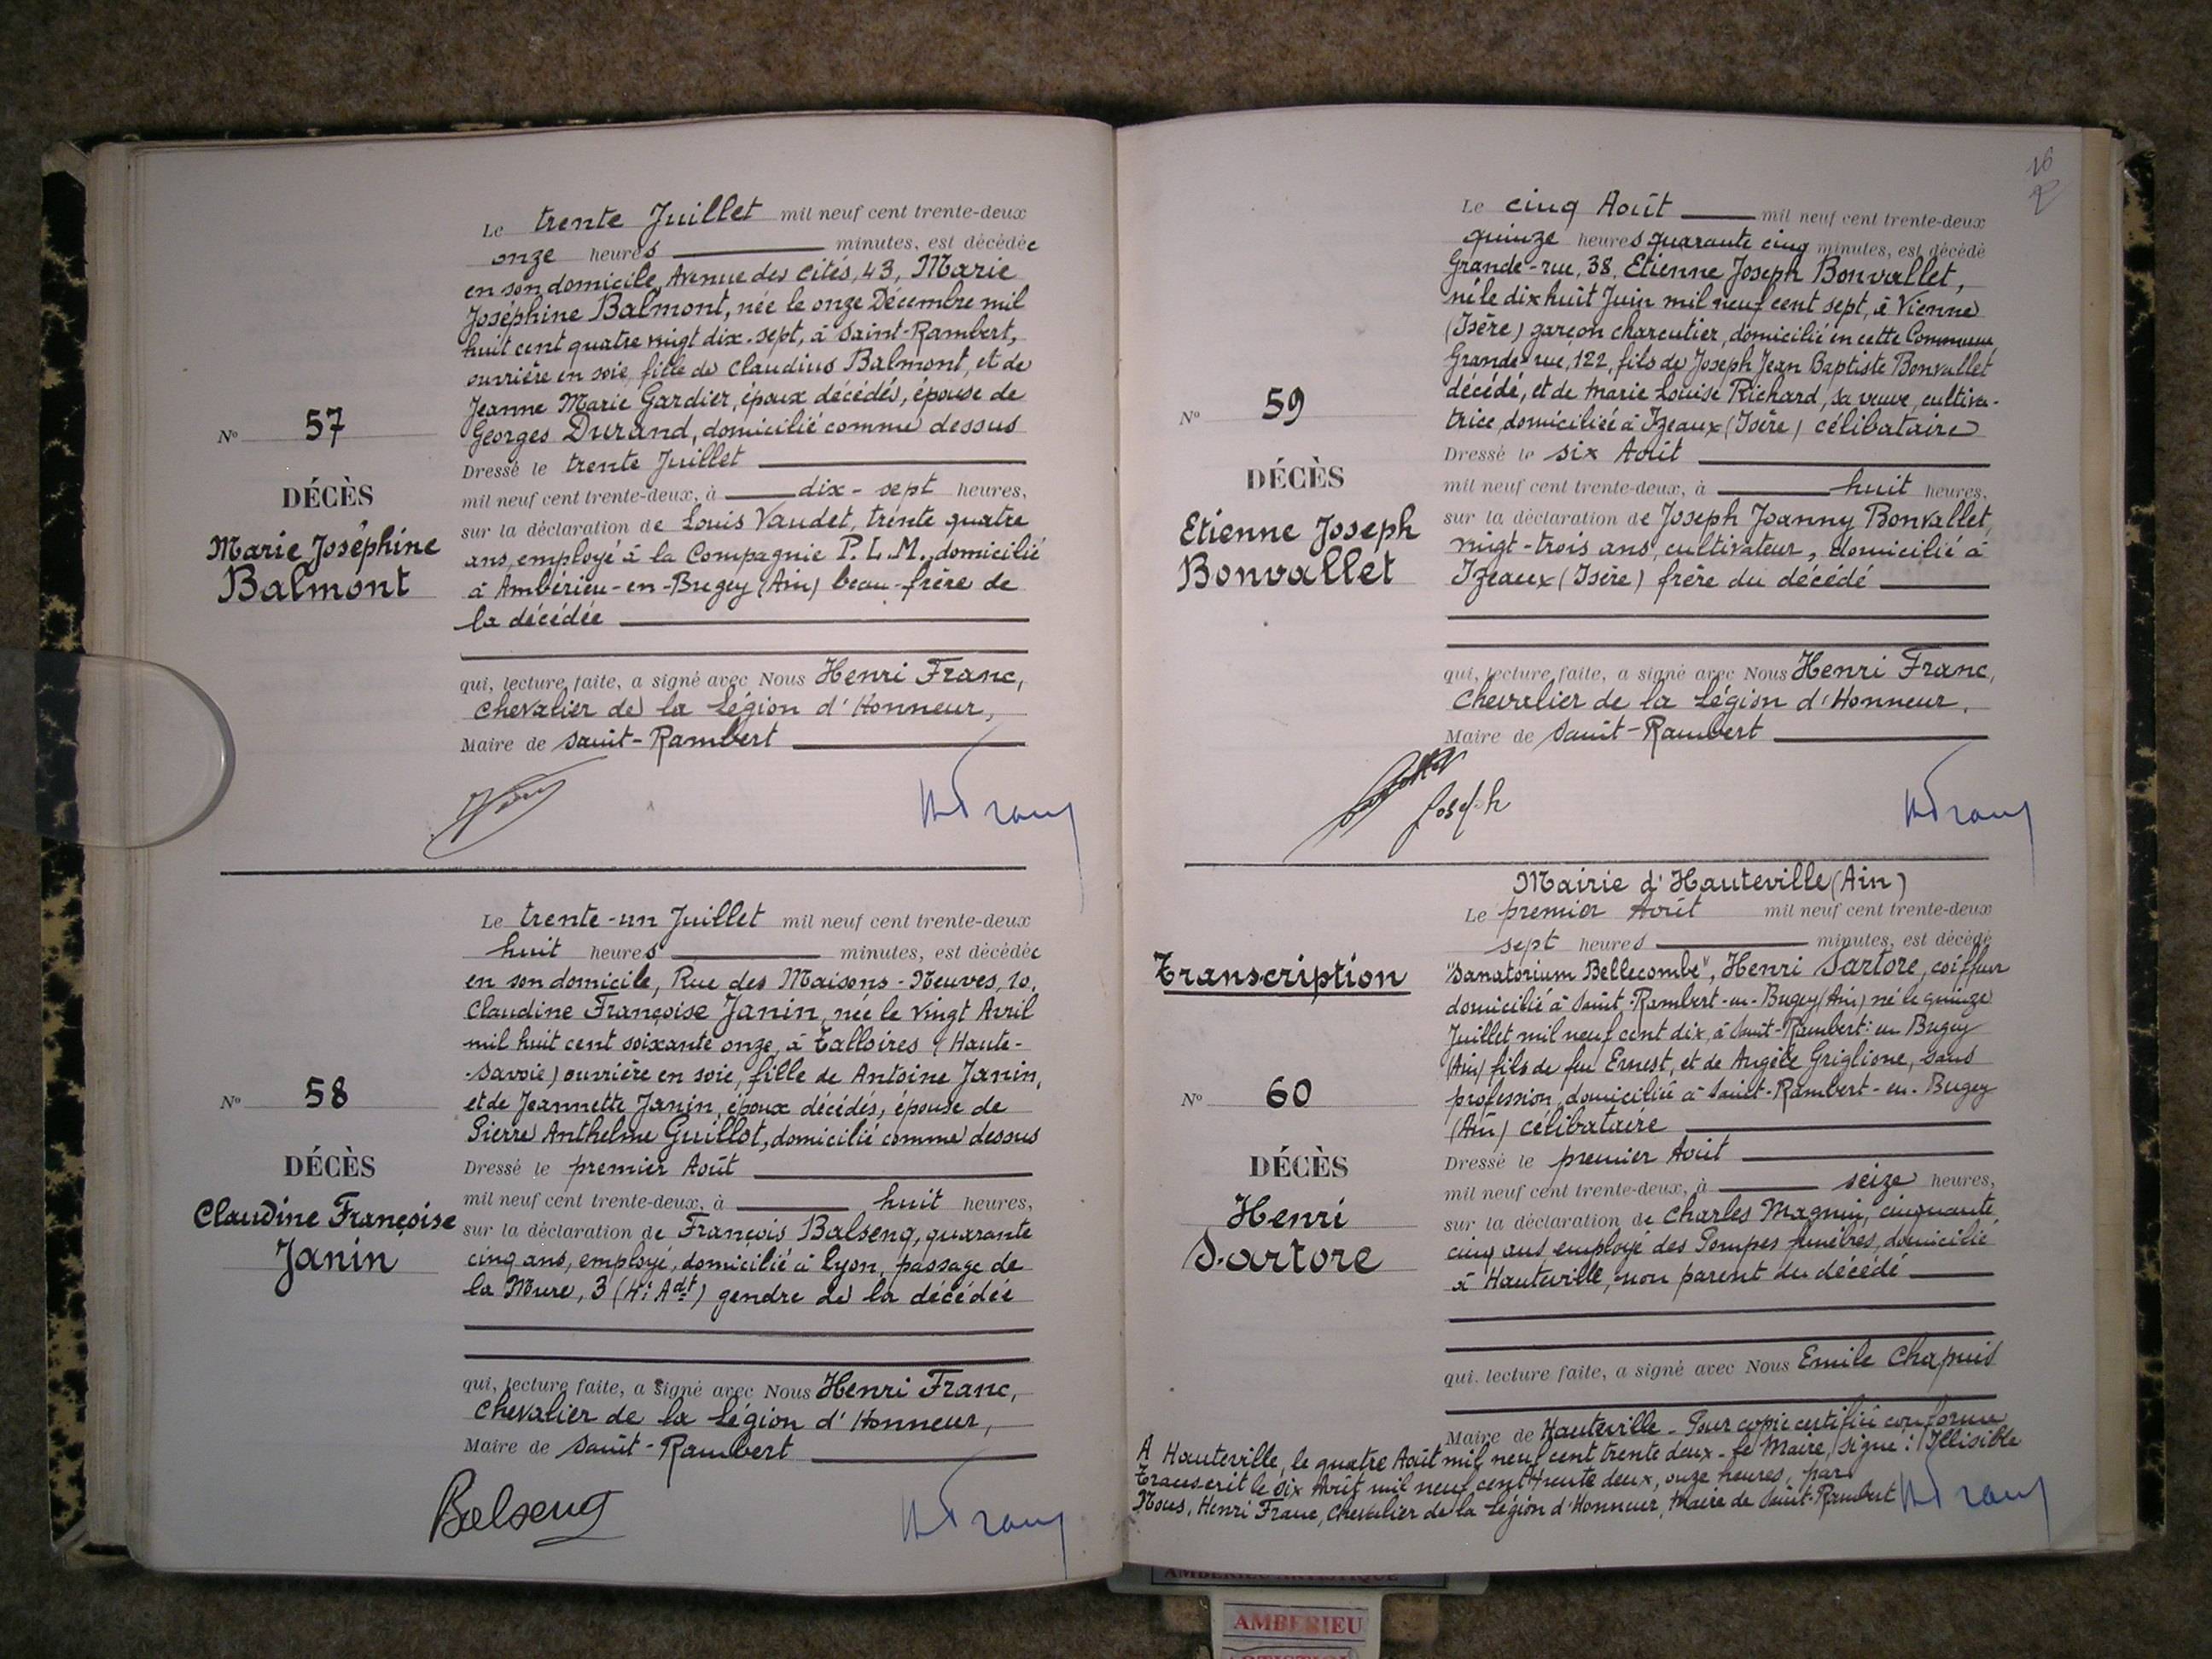 Le trente Juillet mil neuf cent trente-deux
onze heures minutes, est décédée
en son domicile, Avenue des Cités, 43, Marie
Joséphine Balmont, née le onze Décembre mil
huit cent quatre vingt dix-sept, à Saint-Rambert,
ouvrière en soie, fille de Claudius Balmont, et de
Jeanne Marie Gardier, époux décédés, épouse de
Georges Durand, domicilié comme dessus
Dressé le trente Juillet
mil neuf cent trente-deux, à dix-sept heures,
sur la déclaration de Louis Vaudet, trente quatre
ans, employé à la Compagnie P.L.M., domicilié
à Ambérieu-en-Bugey (Ain) beau-frère de
la décédée
qui, lecture faite, a signé avec Nous Henri Franc,
Chevalier de la Légion d'Honneur,
Maire de Saint-Rambert
HFranc
No 57
DÉCÈS
Marie Joséphine
Balmont
Le trente-un Juillet mil neuf cent trente-deux
huit heures minutes, est décédée
en son domicile, Rue des Maisons-Neuves, 10,
Claudine Françoise Janin, née le vingt Avril
mil huit cent soixante onze, à Talloires (Haute-
-Savoie) ouvrière en soie, fille de Antoine Janin,
et de Jeannette Janin, époux décédés, épouse de
Pierre Anthelme Guillot, domicilié comme dessus
Dressé le premier Août
mil neuf cent trente-deux, à huit heures,
sur la déclaration de François Balseng, quarante
cinq ans, employé, domicilié à Lyon, passage de
la Mure, 3 (4e Adt) gendre de la décédée
qui, lecture faite, a signé avec Nous Henri Franc,
Chevalier de la Légion d'Honneur,
Maire de Saint-Rambert
Balseng HFranc
No 58
DÉCÈS
Claudine Françoise
Janin
16
Le cinq Août mil neuf cent trente-deux
quinze heures quarante cinq minutes, est décédé
Grande-rue, 38, Etienne Joseph Bonvallet,
né le dix huit Juin mil neuf cent sept, à Vienne
(Isère) garçon charcutier, domicilié en cette Commune
Grande-rue, 122, fils de Joseph Jean Baptiste Bonvallet
décédé, et de Marie Louise Richard, sa veuve, cultiva-
trice, domiciliée à Izeaux (Isère) célibataire
Dressé le six Août
mil neuf cent trente-deux, à huit heures,
sur la déclaration de Joseph Joanny Bonvallet,
vingt-trois ans, cultivateur, domicilié à
Izeaux (Isère) frère du décédé
qui, lecture faite, a signé avec Nous Henri Franc,
Chevalier de la Légion d'Honneur,
Maire de Saint-Rambert
Joseph HFranc
No 59
DÉCÈS
Etienne Joseph
Bonvallet
Mairie d'Hauteville (Ain)
Le premier Août mil neuf cent trente-deux
sept heures minutes, est décédé
"Sanatorium Bellecombe", Henri Sartore, coiffeur
domicilié à Saint-Rambert-en-Bugey (Ain) né le quinze
Juillet mil neuf cent dix, à Saint-Rambert-en Bugey
(Ain) fils de feu Ernest, et de Angèle Griglione, sans
profession, domiciliée à Saint-Rambert-en-Bugey
(Ain) célibataire
Dressé le premier Août
mil neuf cent trente-deux, à seize heures,
sur la déclaration de Charles Magnin, cinquante
cinq ans employé des Pompes funèbres, domicilié
à Hauteville, non parent du décédé
qui, lecture faite, a signé avec Nous Emile Chapuis
Maire de Hauteville - Pour copie certifiée conforme
A Hauteville, le quatre Août mil neuf cent trente deux - Le Maire, signé : Illisible
Transcrit le six Août mil neuf cent trente deux, onze heures, par
Nous, Henri Franc, Chevalier de la Légion d'Honneur, Maire de Saint-Rambert HFranc
Transcription
No 60
DÉCÈS
Henri
Sartore
AMBERIEU ARTISTIQUE
AMBERIEU